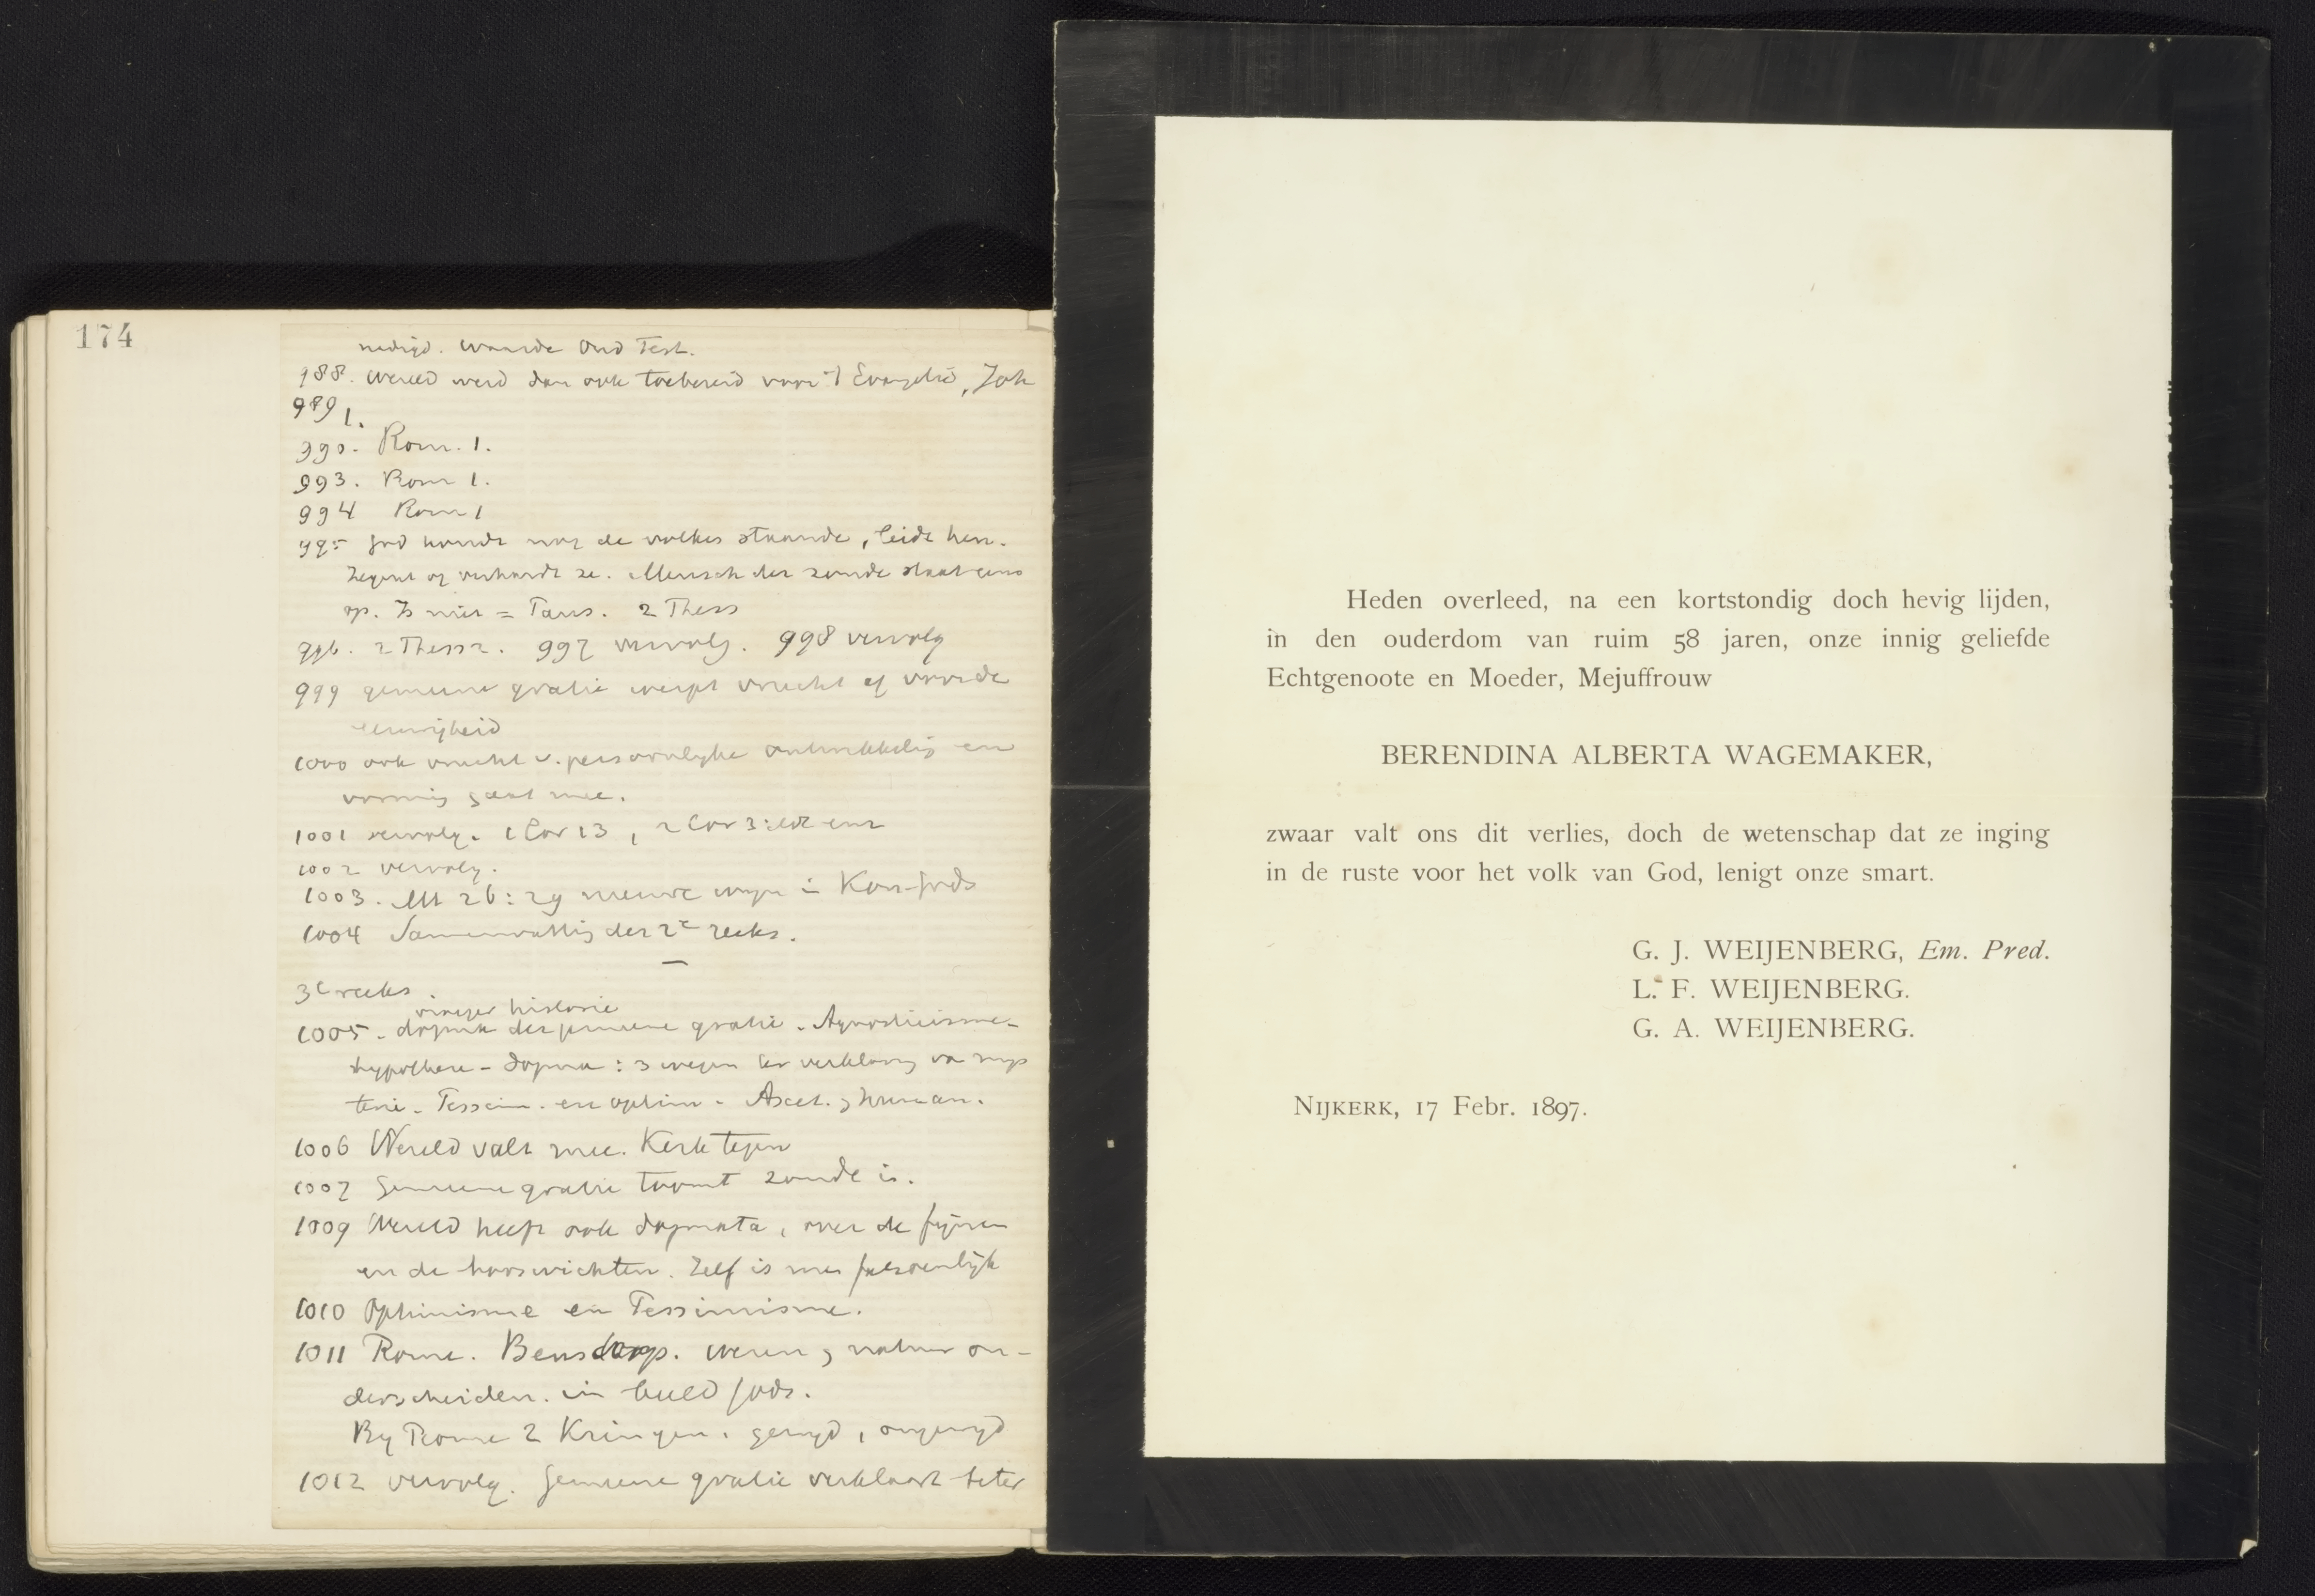 174
Waarde Oud Test.
988. Wereld werd dan ook toebereid voor 't Evangelie, Joh
989 1.
990. Rom. 1.
993. Rom 1.
994 Rom 1
995 God houdt nog de volken staande, leidt hen.
Zegent of verhardt ze. Mensch der zonde staat eens
op. Is niet = Paus. 2 Thess
996. 2 Thess 2. 997 vervolg. 998 vervolg
999 gemeene gratie werpt vrucht af voor de
eeuwigheid
1000 ook vrucht v. persoonlyke ontwikkelig en
vormig gaat mee.
1001 vervolg. 1 Cor 13, 2 Cor
1002 vervolg.
1003. Mt 26:29 nieuwe wyn in Kon. Gods
1004 Samenvattig der 2e reeks.
—
3e reeks.
vroeger historie
1005 - dogma der gemeene gratie. Agnosticisme -
hypothese - dogma : 3 wegen ter verklaring va mys
terie. Pessim. en optim. Ascet. & human.
1006 Wereld valt mee. Kerk tegen
1007 Gemeene gratie toomt zonde in.
1009 Wereld heeft ook dogmata, over de fijnen
en de booswichten. Zelf is men fatsoenlijk
1010 Optimisme en Pessimisme.
1011 Rome. Bensdorp. Wezen & natuur on-
derscheiden. in beeld Gods.
By Rome 2 Kringen. gewyd, ongewyd
1012 vervolg. Gemeene gratie verklaart beter
Heden overleed, na een kortstondig doch hevig lijden,
in den ouderdom van ruim 58 jaren, onze innig geliefde
Echtgenoote en Moeder, Mejuffrouw
BERENDINA ALBERTA WAGEMAKER,
zwaar valt ons dit verlies, doch de wetenschap dat ze inging
in de ruste voor het volk van God, lenigt onze smart.
G. J. WEIJENBERG, Em. Pred.
L. F. WEIJENBERG.
G. A. WEIJENBERG.
NIJKERK, 17 Febr. 1897.